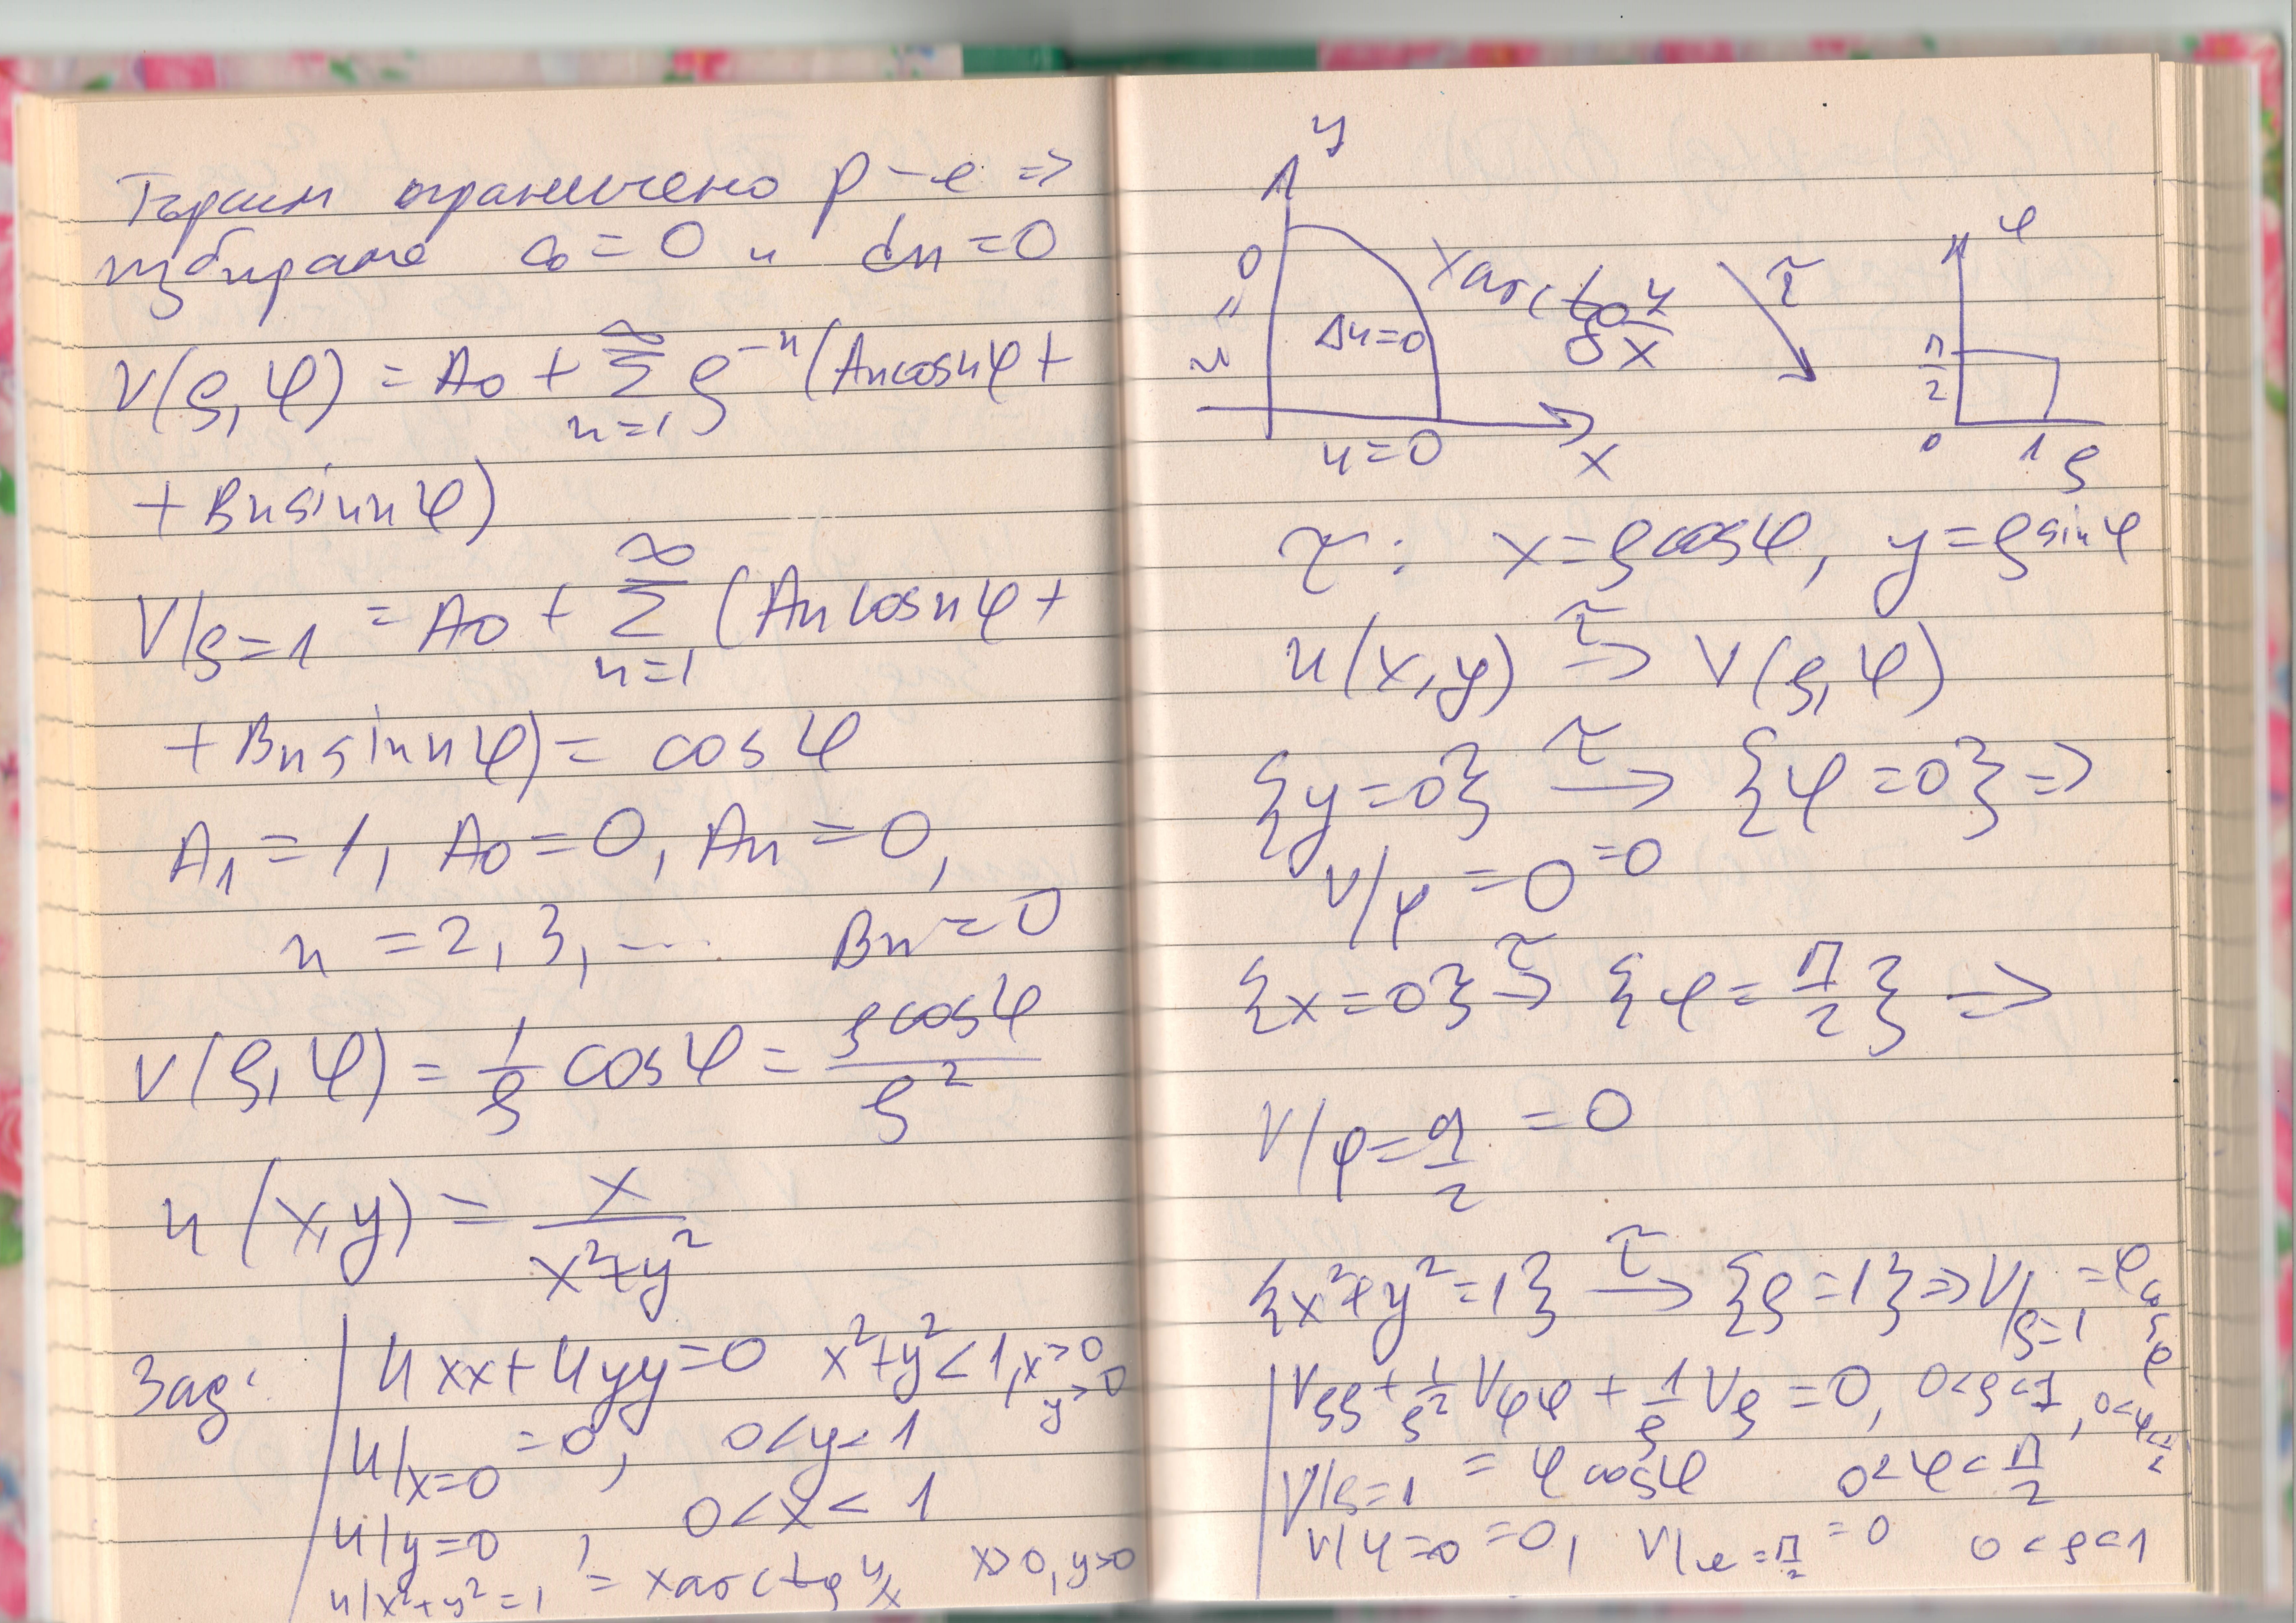 Търсим ограничено р-е =>
избираме c₀ = 0 и dn = 0
V(ρ,φ) = A₀ + ∞∑n=1 ρ⁻ⁿ(An cosnφ +
+ Bn sinnφ)
V|ρ=1 = A₀ + ∞∑n=1 (An cosnφ +
+ Bn sinnφ) = cosφ
A₁ = 1, A₀ = 0, An = 0,
n = 2, 3, ... Bn = 0
V(ρ,φ) = 1/ρ cosφ = ρcosφ/ρ²
u(x,y) = x/(x²+y²)
Зад: uxx + uyy = 0 x²+y² < 1, x>0, y>0
u|x=0 = 0, 0<y<1
u|y=0 , 0<x<1
u|x²+y²=1 = x arctg y/x x>0, y>0
y
u = 0
Δu=0
x arctg y/x
u=0
x
τ
φ
π/2
0
1
ρ
τ: x = ρcosφ, y = ρsinφ
u(x,y) τ→ V(ρ,φ)
{y=0} τ→ {φ=0} =>
V|φ=0 =0
{x=0} τ→ {φ = π/2} =>
V|φ=π/2 = 0
{x²+y²=1} τ→ {ρ=1} => V|ρ=1 = φcosφ
Vρρ + 1/ρ² Vφφ + 1/ρ Vρ = 0, 0<ρ<1, 0<φ<π/2
V|ρ=1 = φcosφ 0<φ<π/2
V|φ=0 = 0, V|φ=π/2 = 0 0<ρ<1